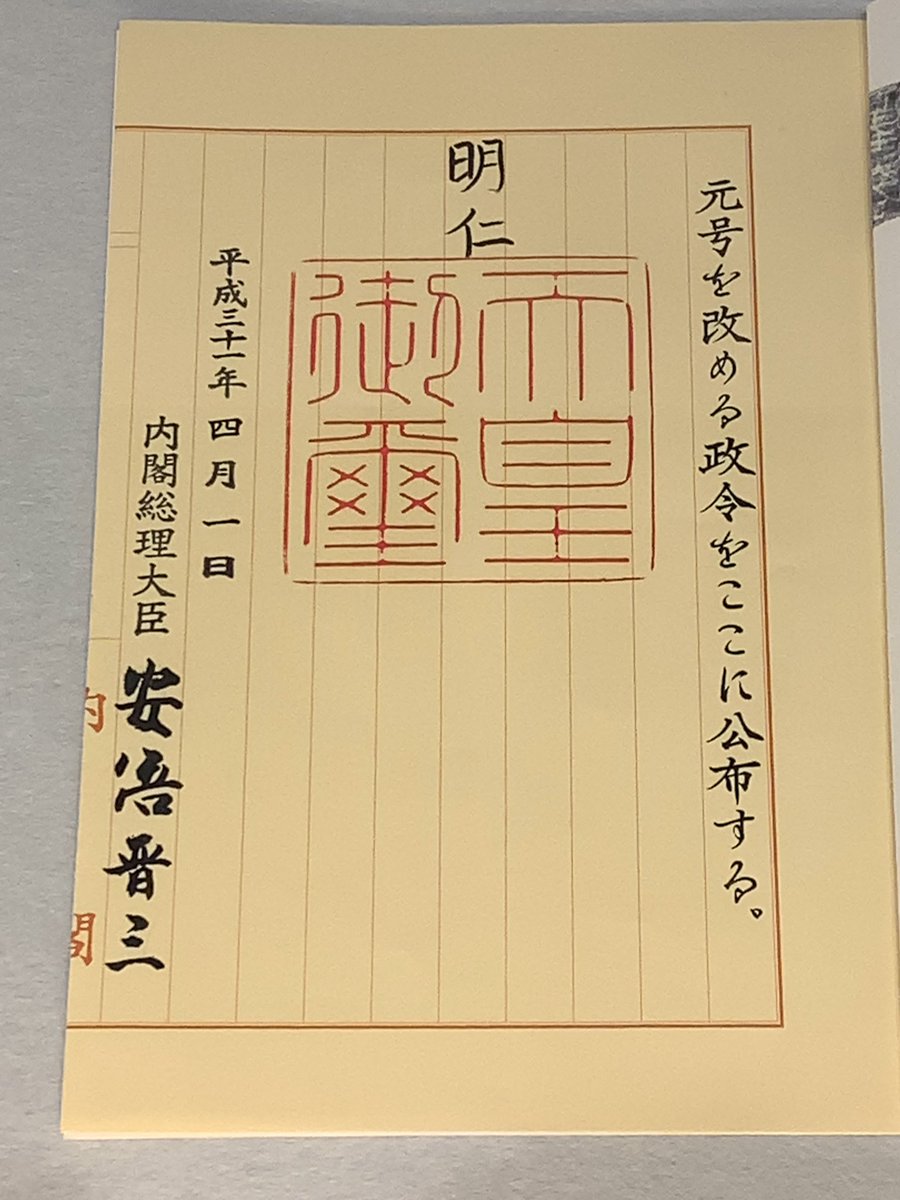 元号を改める政令をここに公布する。
明仁
天皇
御璽
平成三十一年四月一日
内閣総理大臣 安倍晋三
内閣